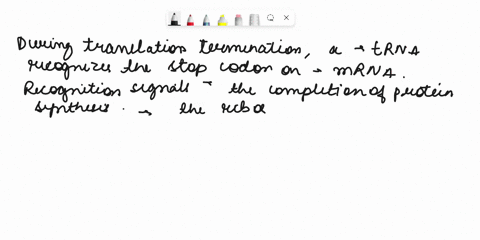 During translation termination, a → tRNA
recognizes the stop codon on → mRNA.
Recognition signals → the completion of protein
synthesis. → the ribo